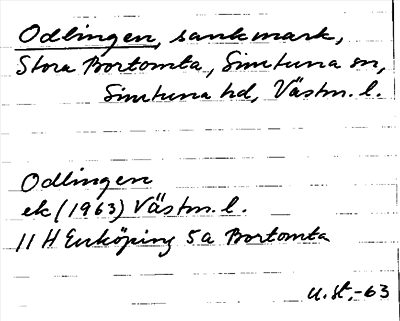 Odlingen, sankmark,
Stora Bortomta, Simtuna sn,
Simtuna hd, Västm. l.
Odlingen
ek (1963) Västm. l.
11 H Enköping 5a Bortomta
U. St. -63